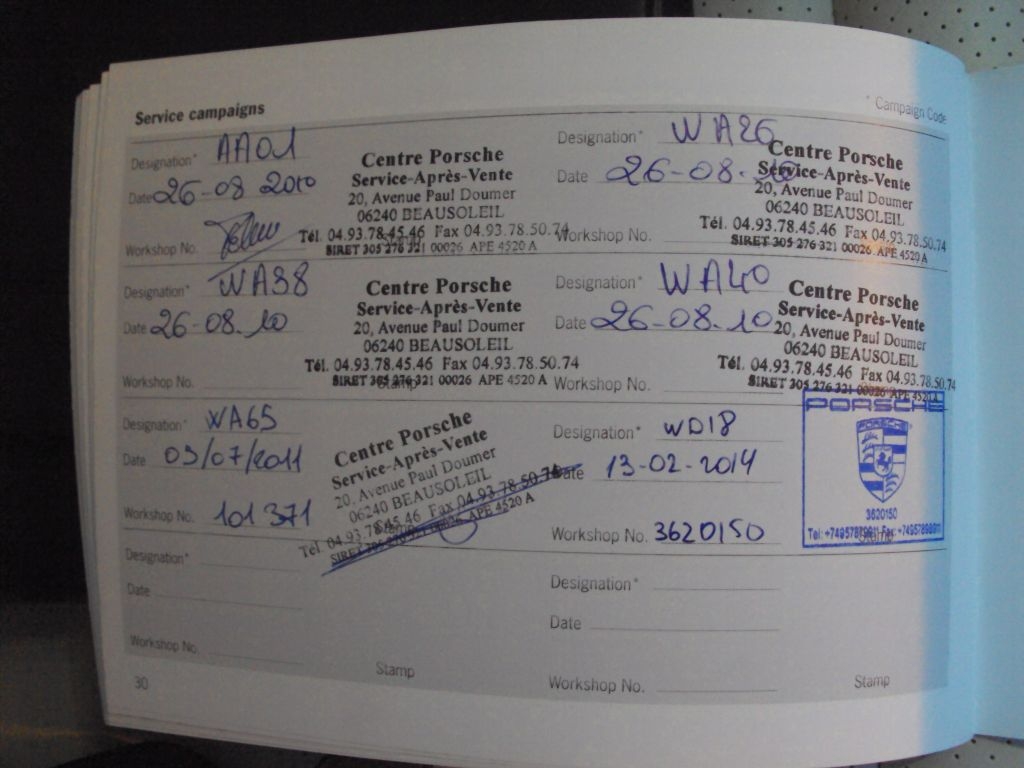 Service campaigns
* Campaign Code
Designation* AA01
Date 26-08 2010
Workshop No.
Centre Porsche
Service-Après-Vente
20, Avenue Paul Doumer
06240 BEAUSOLEIL
Tél. 04.93.78.45.46 Fax 04.93.78.50.74
SIRET 305 276 321 00026 APE 4520 A
Designation* WA26
Date 26-08.10
Workshop No.
Centre Porsche
Service-Après-Vente
20, Avenue Paul Doumer
06240 BEAUSOLEIL
Tél. 04.93.78.45.46 Fax 04.93.78.50.74
SIRET 305 276 321 00026 APE 4520 A
Designation* WA38
Date 26-08.10
Workshop No.
Centre Porsche
Service-Après-Vente
20, Avenue Paul Doumer
06240 BEAUSOLEIL
Tél. 04.93.78.45.46 Fax 04.93.78.50.74
SIRET 305 276 321 00026 APE 4520 A
Designation* WA40
Date 26-08.10
Workshop No.
Centre Porsche
Service-Après-Vente
20, Avenue Paul Doumer
06240 BEAUSOLEIL
Tél. 04.93.78.45.46 Fax 04.93.78.50.74
SIRET 305 276 321 00026 APE 4520 A
Designation* WA65
Date 03/07/2011
Workshop No. 101 371
Centre Porsche
Service-Après-Vente
20, Avenue Paul Doumer
06240 BEAUSOLEIL
Tél. 04.93.78.45.46 Fax 04.93.78.50.74
SIRET 305 276 321 00026 APE 4520 A
Designation* WD18
Date 13-02-2014
Workshop No. 3620150
PORSCHE
PORSCHE
3620150
Tel: Fax:
Designation*
Date
Workshop No.
Stamp
Designation*
Date
Workshop No.
Stamp
30